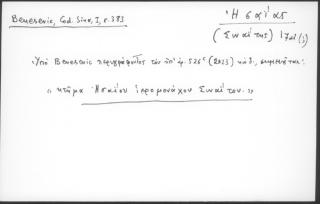 Beneševič, Cod. Sina, I, σ. 383
Ἡσαΐας
(Σιναΐτης) 17αι (;)
Ὑπὸ Beneševič περιγράφοντος τὸν ὑπ' ἀρ. 526 (2023) κώδ., σημειοῦται:
« κτῆμα Ἡσαΐου ἱερομονάχου Σιναΐτου. »